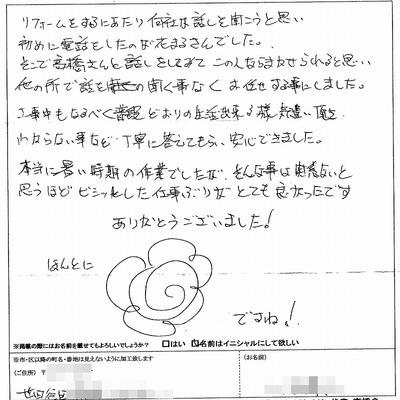 リフォームをするにあたり何社か話しを聞こうと思い
初めに電話をしたのが花まるさんでした。
そこで高橋さんと話しをしてみて この人ならまかせられると思い
他の所で話を聞く事なくお任せする事にしました。
工事中もなるべく普段どおりの生活出来る様、気遣い頂き
わからない事など丁寧に答えてもらい、安心できました。
本当に暑い時期の作業でしたが、そんな事は関係ないと
思うほどビシッとした仕事ぶりがとても良かったです
ありがとうございました!
ほんとに
ですね!
※掲載の際にはお名前を載せてもよろしいでしょうか? □はい ☑名前はイニシャルにして欲しい
※市・区以降の町名・番地は見えないように加工致します
(お名前)
(ご住所) 〒
世田谷区